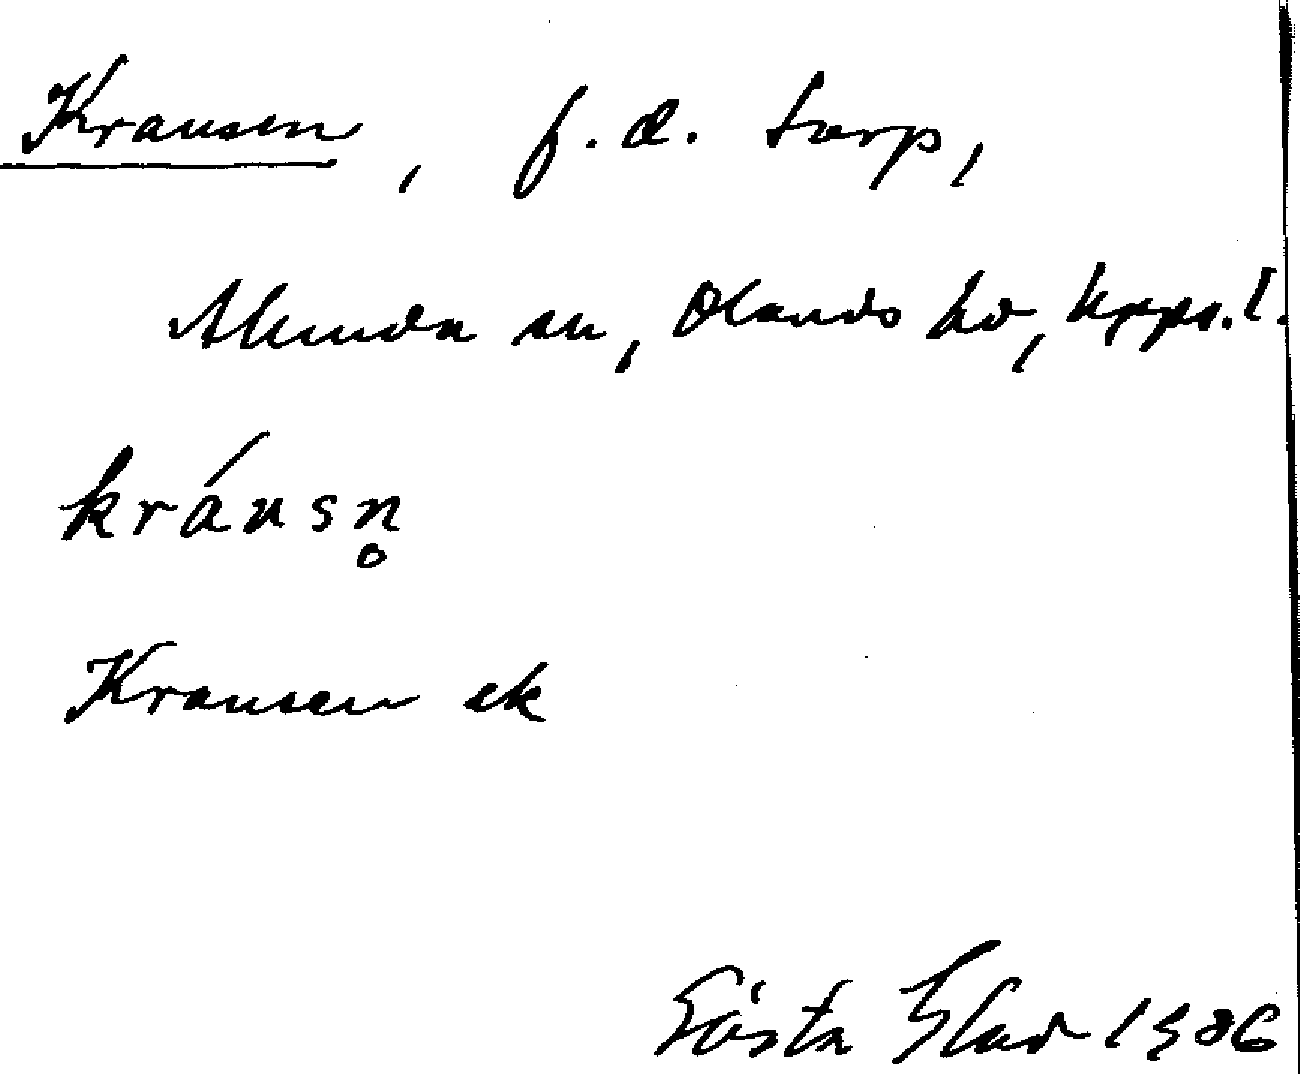 Krausen, f.d. torp,
Alunda sn, Olands hd, Upps.l.
kráusn̥
Krausen ek
Gösta Elav 1986